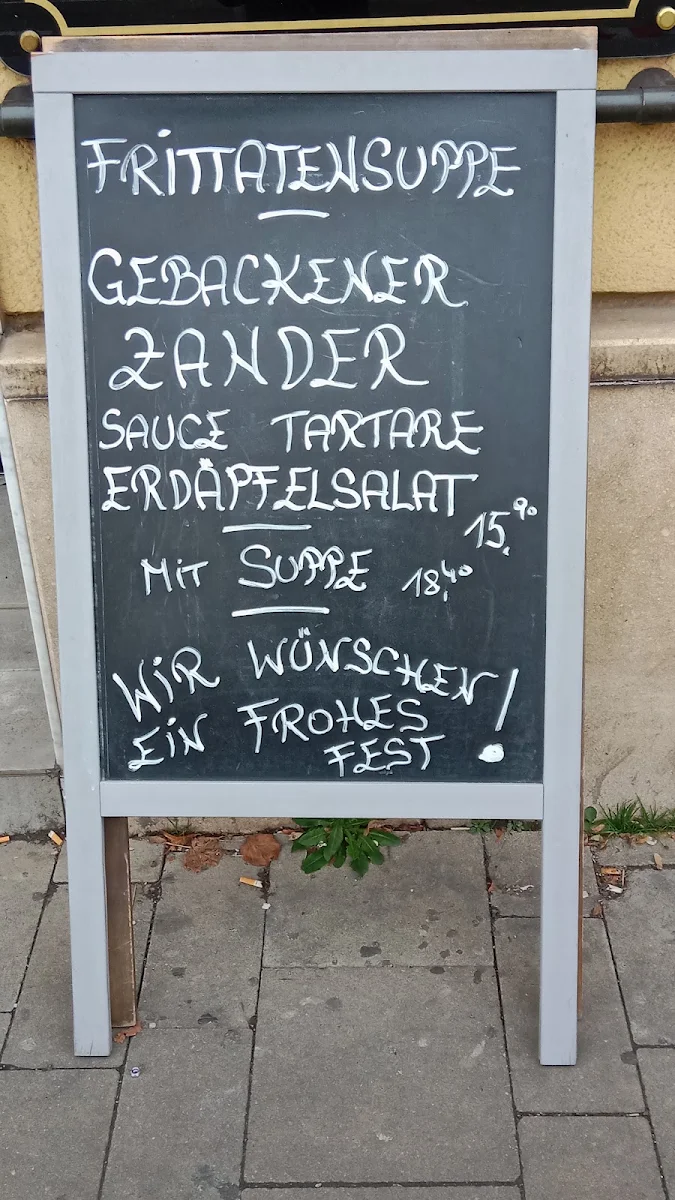 FRITTATENSUPPE
GEBACKENER
ZANDER
SAUCE TARTARE
ERDÄPFELSALAT
15,90
MIT SUPPE 18,40
WIR WÜNSCHEN!
EIN FROHES
FEST